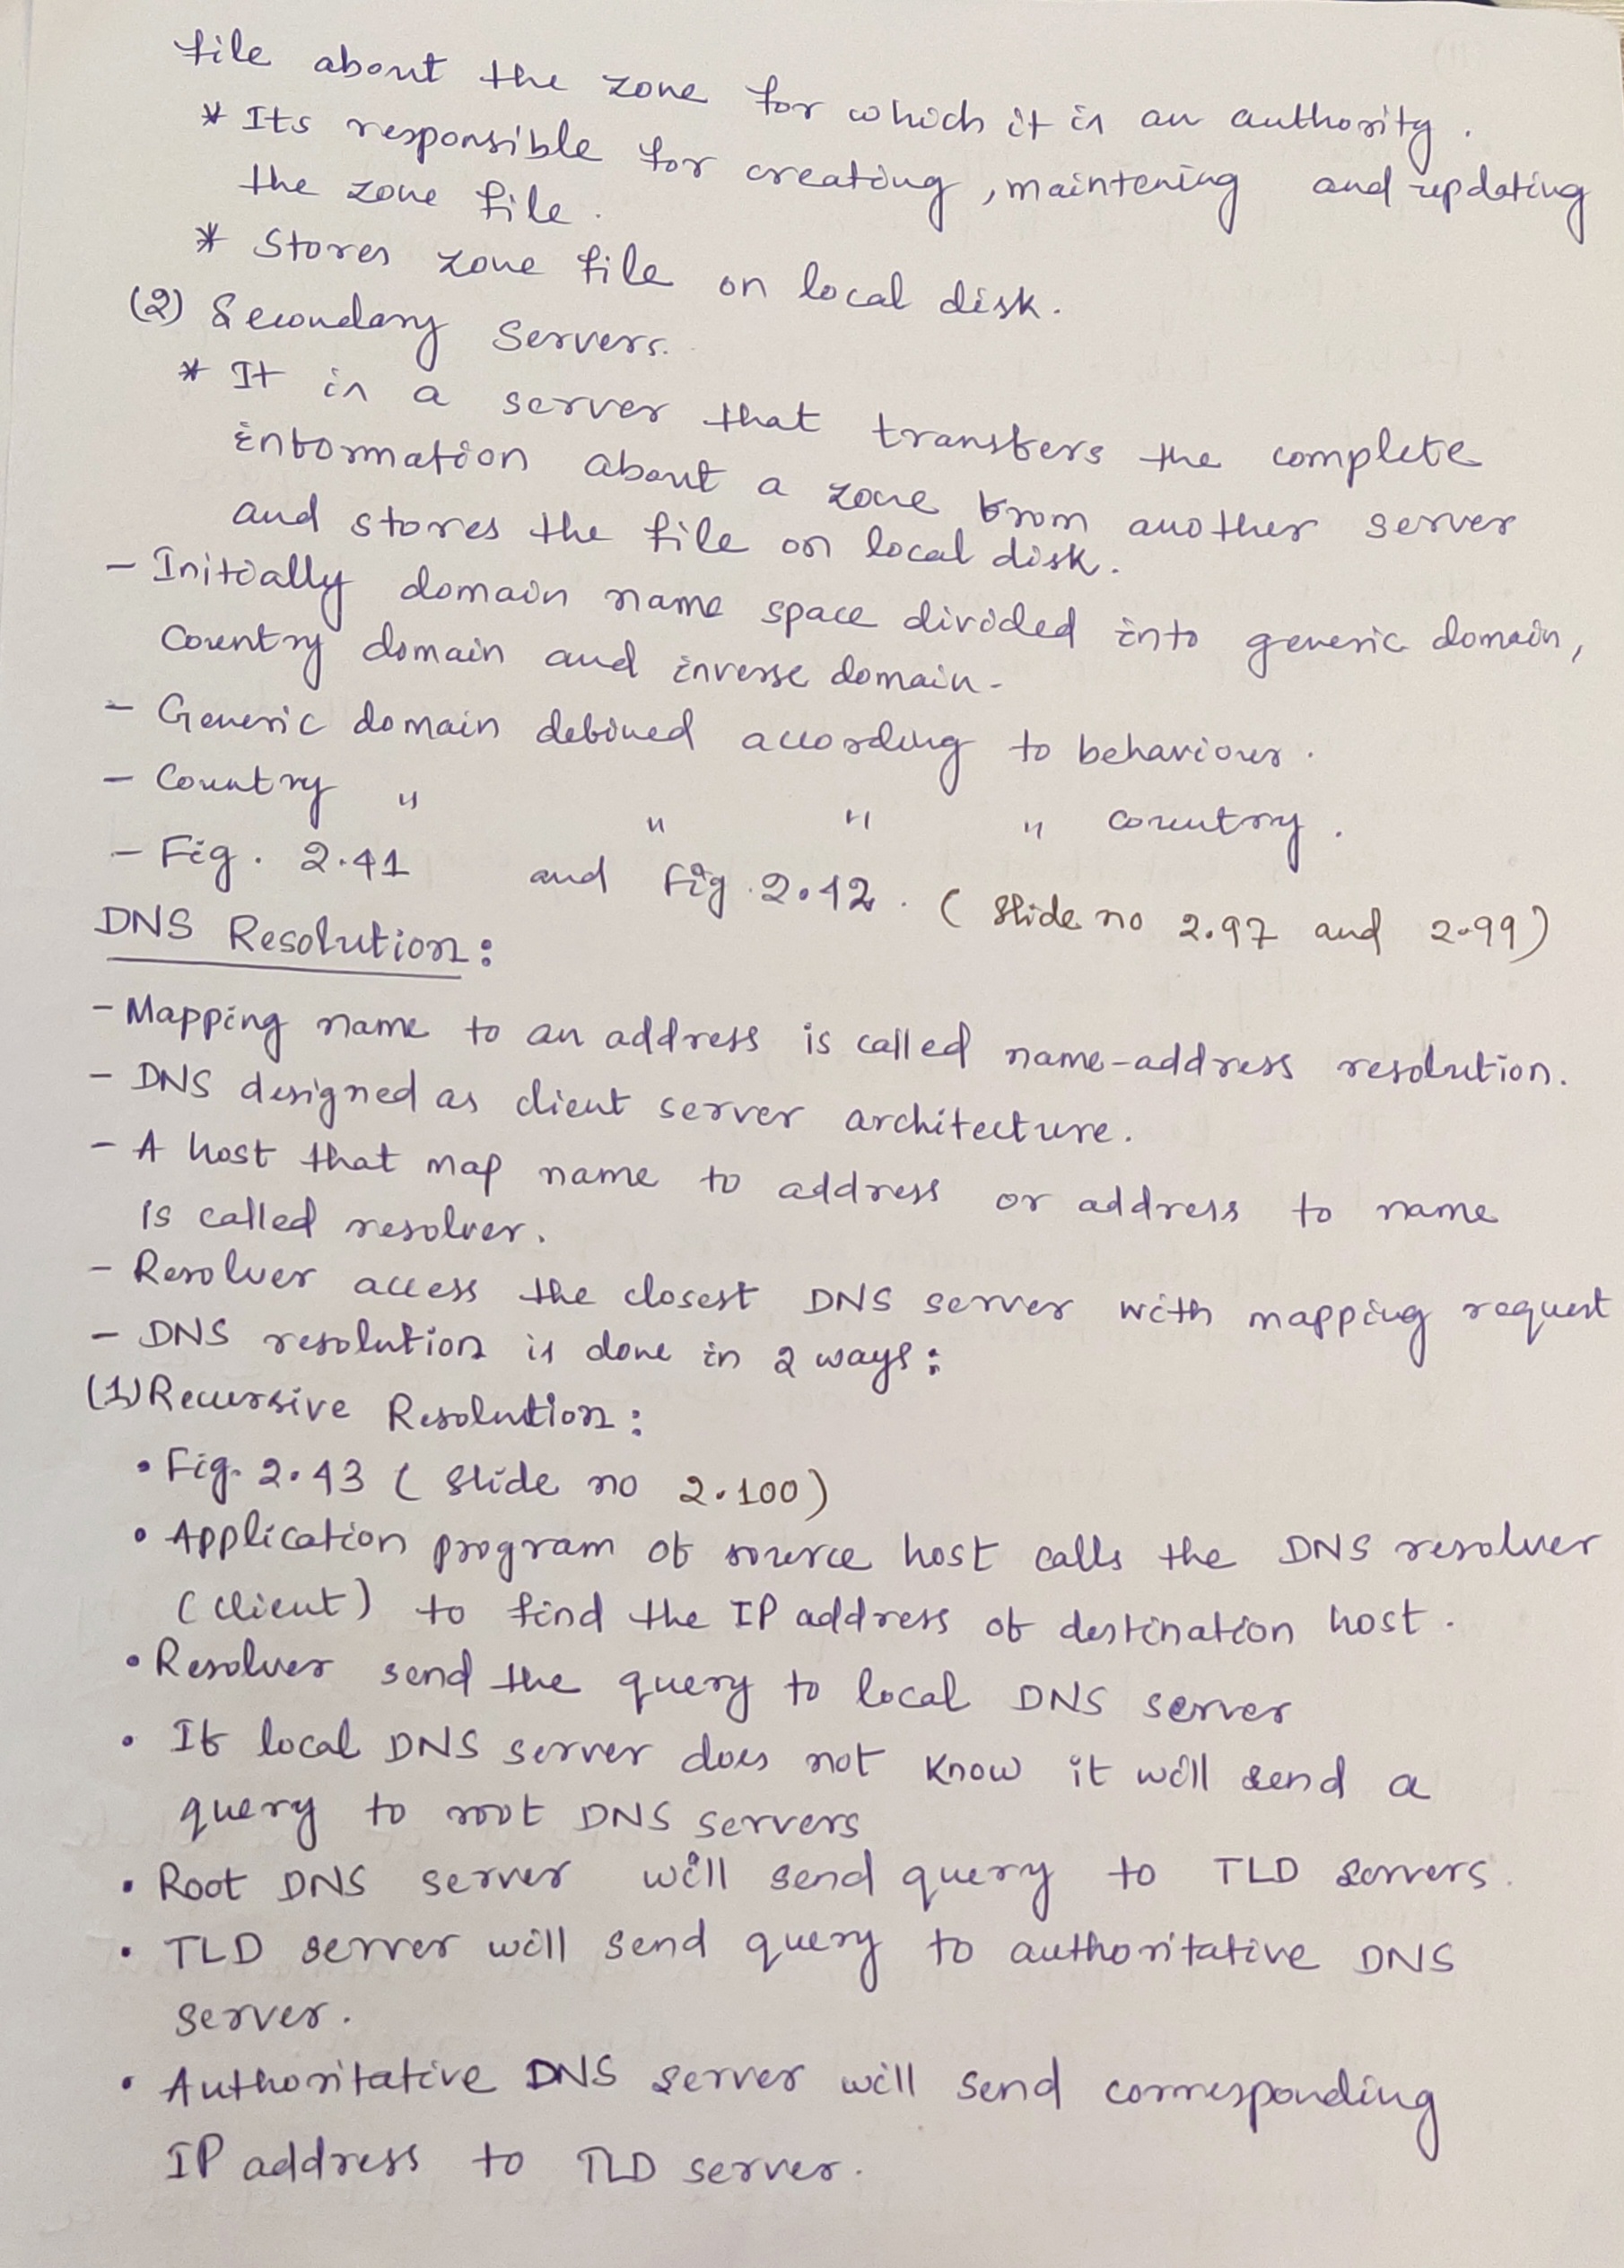 file about the zone for which it is an authority.
* Its responsible for creating, maintening and updating
the zone file.
* Stores zone file on local disk.
(2) Secondary Servers.
* It is a server that transfers the complete
information about a zone from another server
and stores the file on local disk.
- Initially domain name space divided into generic domain,
Country domain and inverse domain.
- Generic domain defined according to behaviour.
- Country " " " " country.
- Fig. 2.41 and Fig 2.42. (Slide no 2.97 and 2.99)
DNS Resolution:
- Mapping name to an address is called name-address resolution.
- DNS designed as client server architecture.
- A host that map name to address or address to name
is called resolver.
- Resolver access the closest DNS server with mapping request
- DNS resolution is done in 2 ways:
(1) Recursive Resolution:
• Fig. 2.43 (Slide no 2.100)
• Application program of source host calls the DNS resolver
(client) to find the IP address of destination host.
• Resolver send the query to local DNS server
• If local DNS server does not know it will send a
query to root DNS servers
• Root DNS server will send query to TLD servers.
• TLD server will send query to authoritative DNS
server.
• Authoritative DNS server will send corresponding
IP address to TLD server.